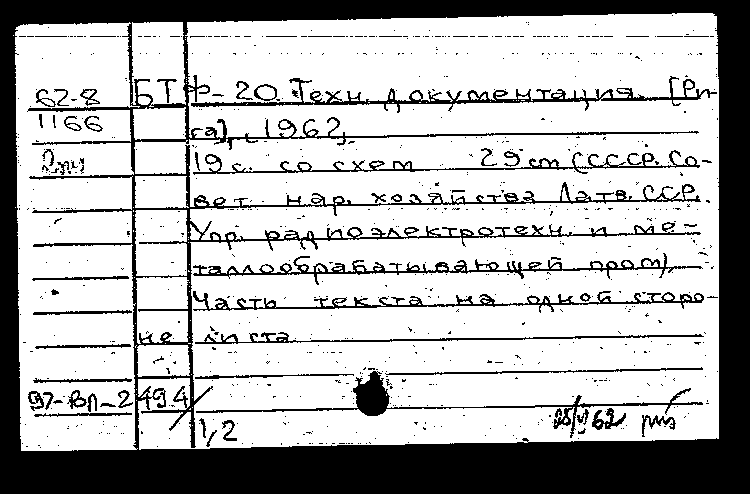 62-8 БТФ-20. Техн. документация. [Ри-
1166 га], 1962,
19 с. со схем 29 см (СССР. Со-
вет нар. хозяйства Латв. ССР.
Упр. радиоэлектротехн. и ме-
таллообрабатывающей пром).
Часть текста на одной сторо-
не листа
97-ВП-2 494
1/2 25/VI 62